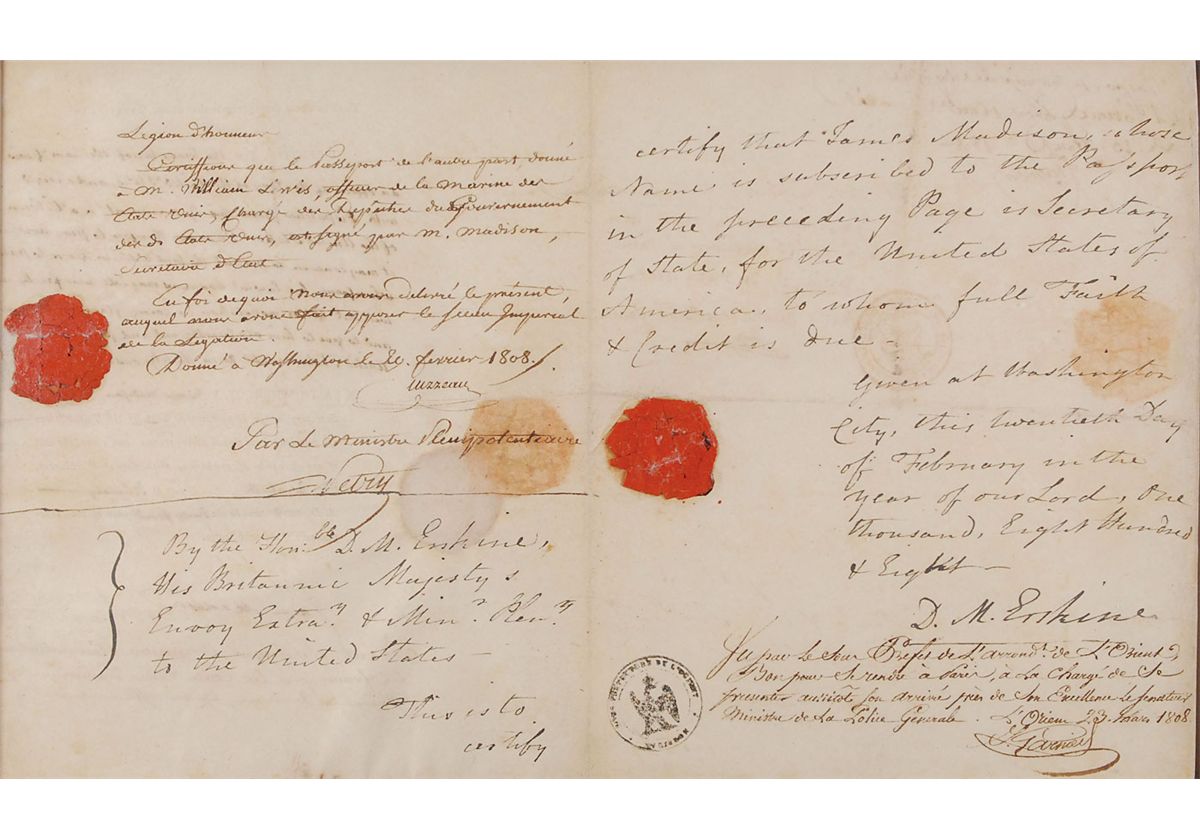 Légion d'honneur
Certiffions que le Passeport de l'autre part donné
à M. William Lewis, officier de la marine des
états unis, chargé des Depêches du Gouvernement
des ds. états unis, est signé par M. Madison,
Secretaire d'Etat
En foi de quoi nous avons délivré le présent,
auquel nous avons fait apposer le sceau Imperial
de la Légation.
Donné à Washington le 20. février 1808.
Turreau
Par Le Ministre Plenipotentiaire
Petry
By the Honble D. M. Erskine,
His Britannic Majestys
Envoy Extray & Minr. Plenry
to the United States
This is to
certify
certify that James Madison, whose
Name is subscribed to the Passport
in the preceding Page is Secretary
of State, for the United States of
America, to whom full Faith
& Credit is due -
Given at Washington
City, this twentieth Day
of February in the
year of our Lord, One
thousand, Eight Hundred
& Eight -
D. M. Erskine
Vu par le Sous Préfet de L'arrondt. de L'Orient,
Bon pour Se rendre à Paris, à La Charge de Se
presenter aussitôt Son arrivé près de Son Excellence Le Senateur
Ministre de La Police Generale. L'Orient 23 Mars 1808